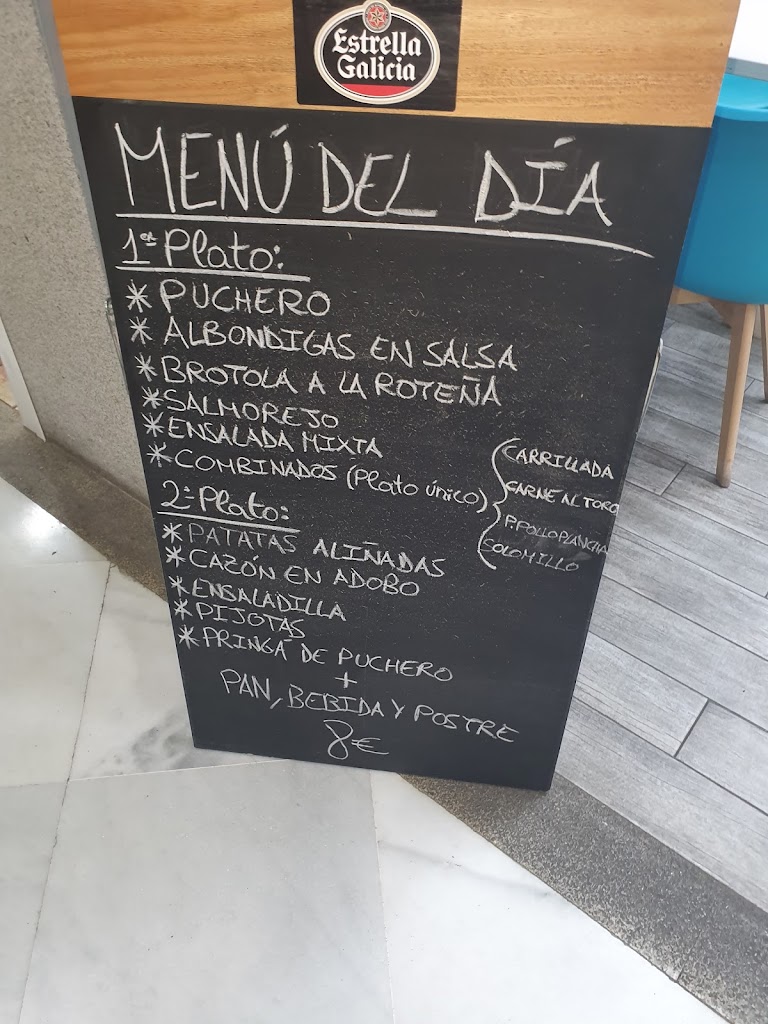 Estrella
Galicia
MENÚ DEL DÍA
1er Plato:
* PUCHERO
* ALBONDIGAS EN SALSA
* BROTOLA A LA ROTEÑA
* SALMOREJO
* ENSALADA MIXTA
* COMBINADOS (Plato único)
CARRILLADA
CARNE AL TORO
P. POLLO PLANCHA
SOLOMILLO
2º Plato:
* PATATAS ALIÑADAS
* CAZÓN EN ADOBO
* ENSALADILLA
* PIJOTAS
* PRINGÁ DE PUCHERO
+
PAN, BEBIDA Y POSTRE
8€